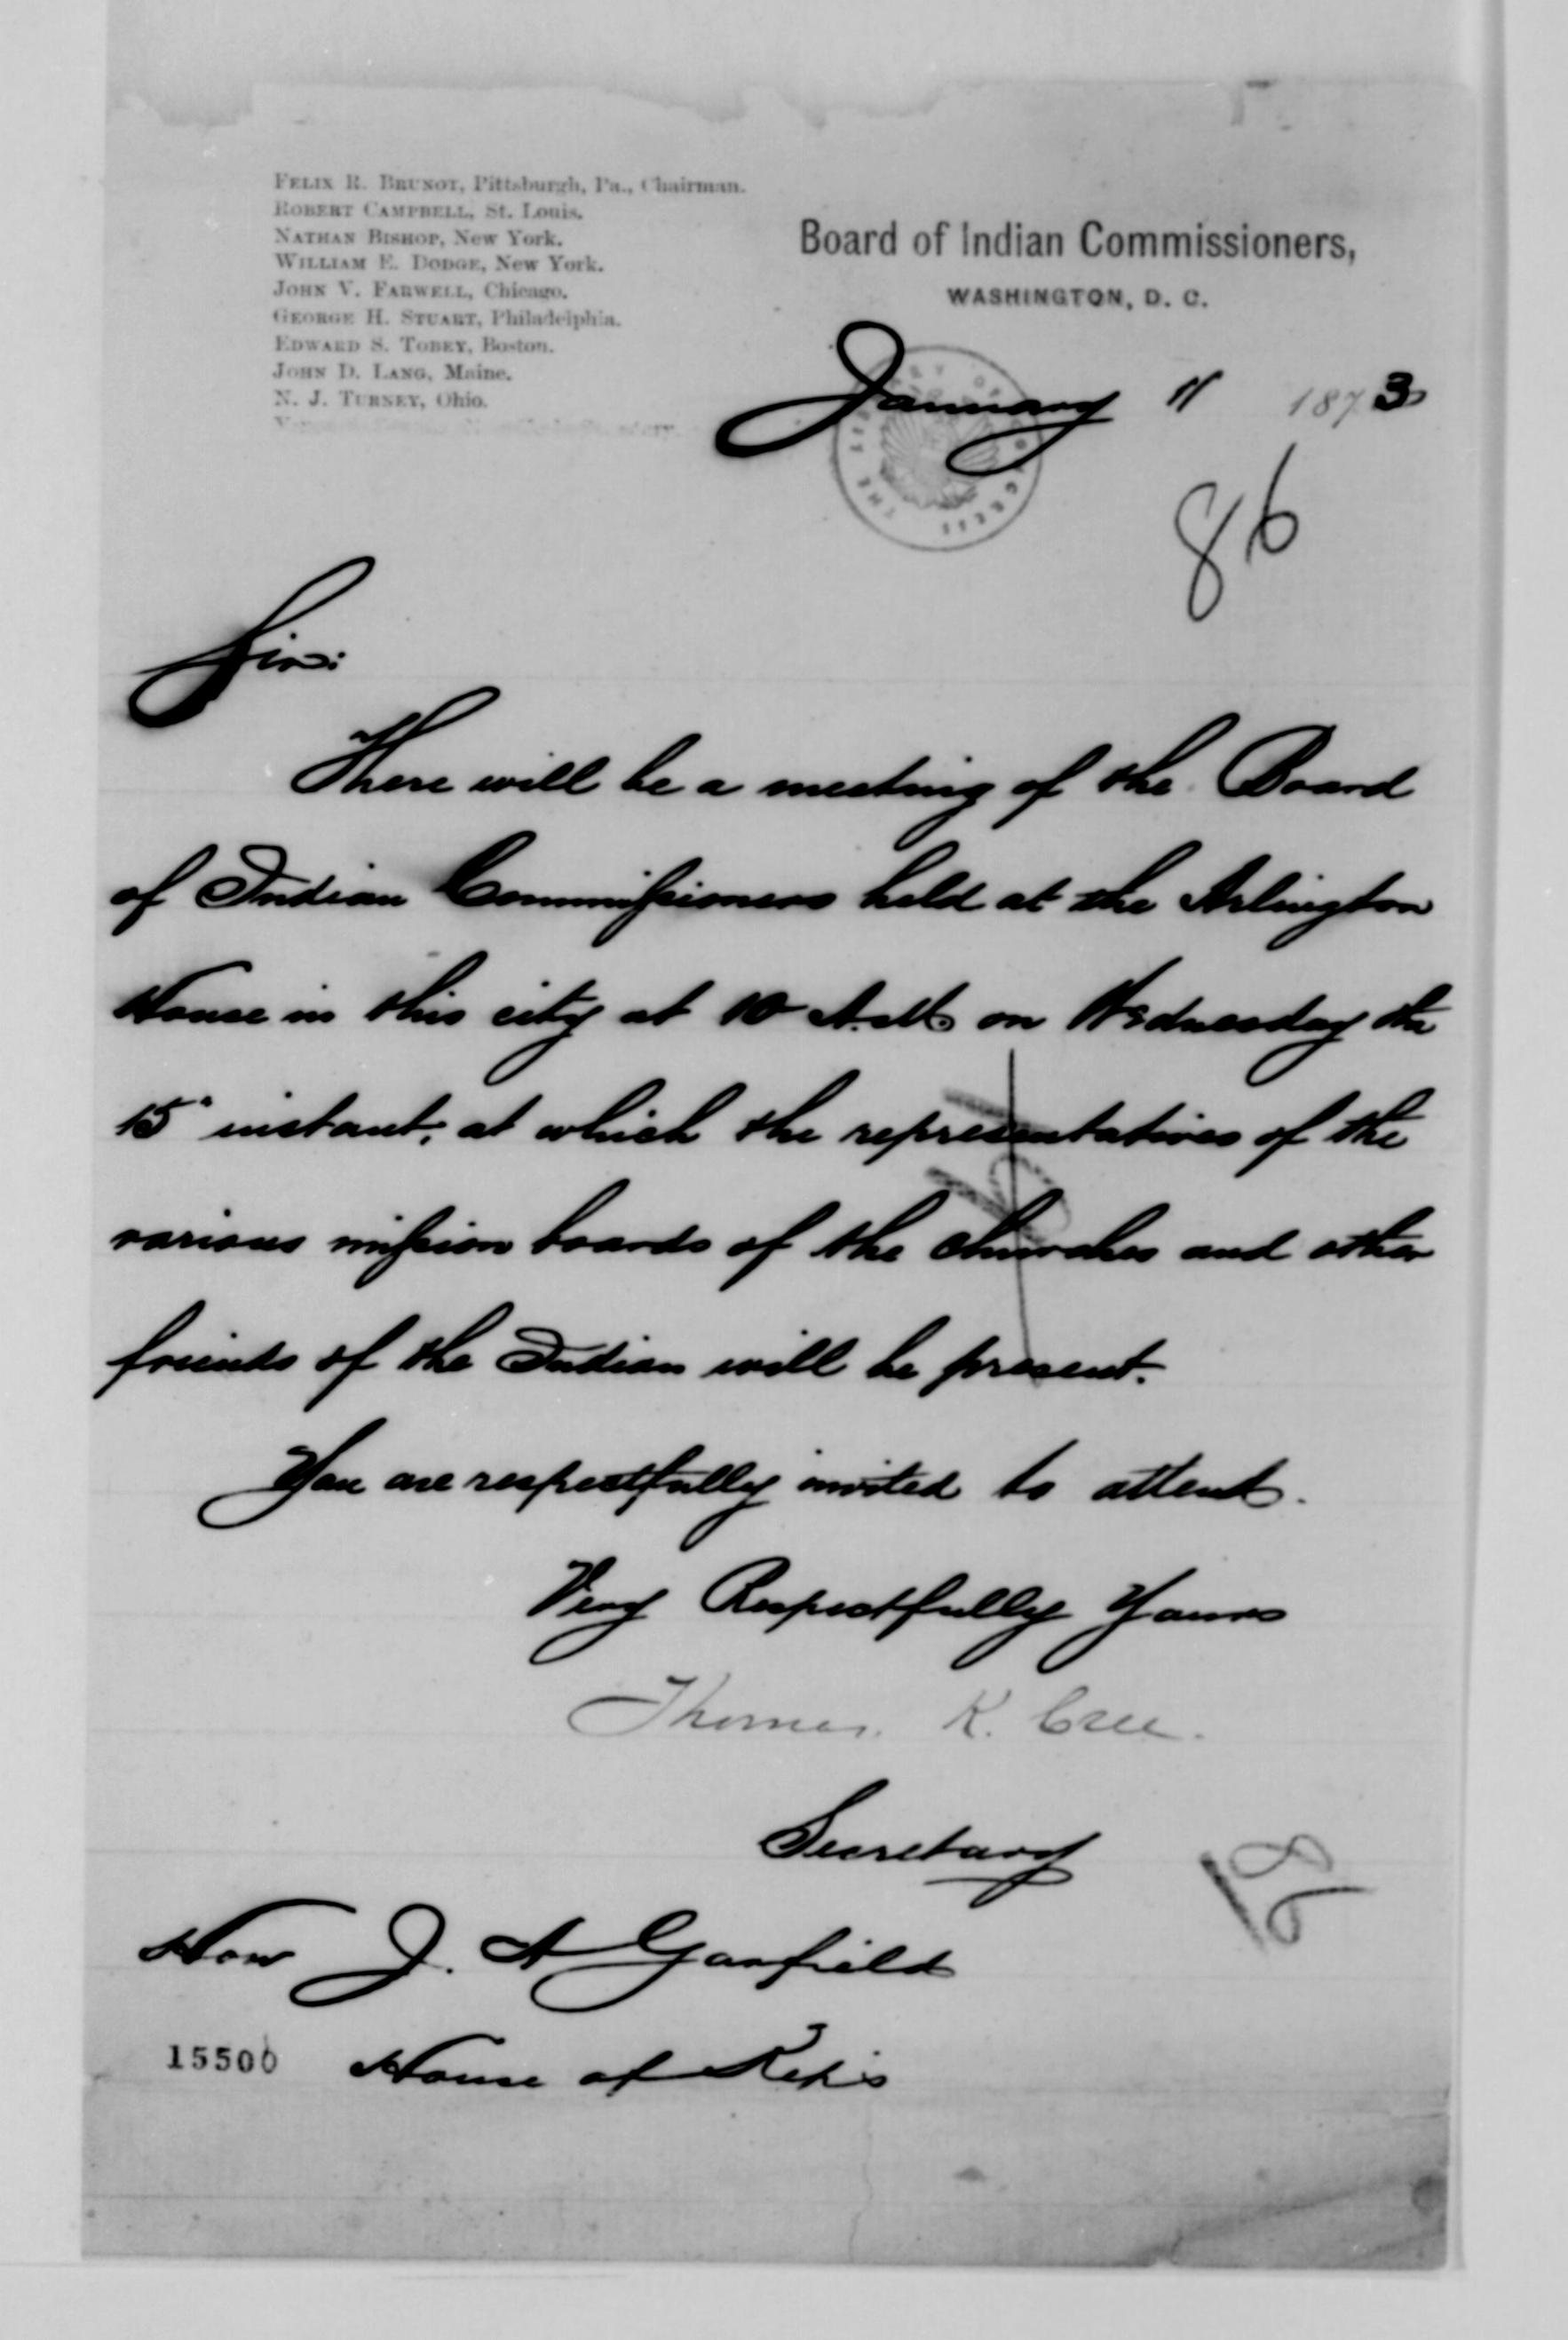 FELIX R. BRUNOT, Pittsburgh, Pa., Chairman.
ROBERT CAMPBELL, St. Louis.
NATHAN BISHOP, New York.
WILLIAM E. DODGE, New York.
JOHN V. FARWELL, Chicago.
GEORGE H. STUART, Philadelphia.
EDWARD S. TOBEY, Boston.
JOHN D. LANG, Maine.
N. J. TURNEY, Ohio.
Board of Indian Commissioners,
WASHINGTON, D. C.
January 11 1873
THE LIBRARY OF CONGRESS
86
Sir:
There will be a meeting of the Board
of Indian Commissioners held at the Arlington
House in this city at 10 A.M. on Wednesday the
15" instant, at which the representatives of the
various mission boards of the churches and other
friends of the Indian will be present.
You are respectfully invited to attend.
Very Respectfully Yours
Thomas. K. Cree.
Secretary
Hon J. A Garfield
15500 House of Rep's